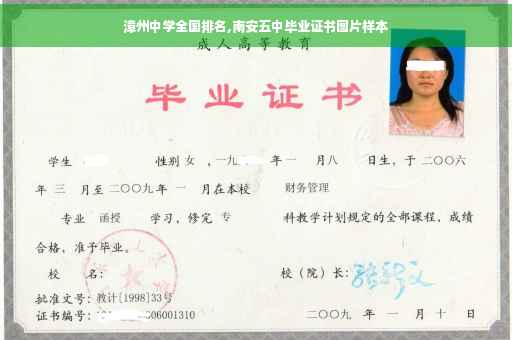 漳州中学全国排名,南安五中毕业证书图片样本
成人高等教育
毕业证书
学生 性别 女 ,一九 年 一 月八 日生，于二〇〇六
年 三 月至二〇〇九年 一 月在本校 财务管理
专业 函授 学习，修完 专 科教学计划规定的全部课程，成绩
合格，准予毕业。
校 名： 校（院）长：
批准文号：教计[1998]33号
证书编号： 06001310 二〇〇九 年 一 月 十 日